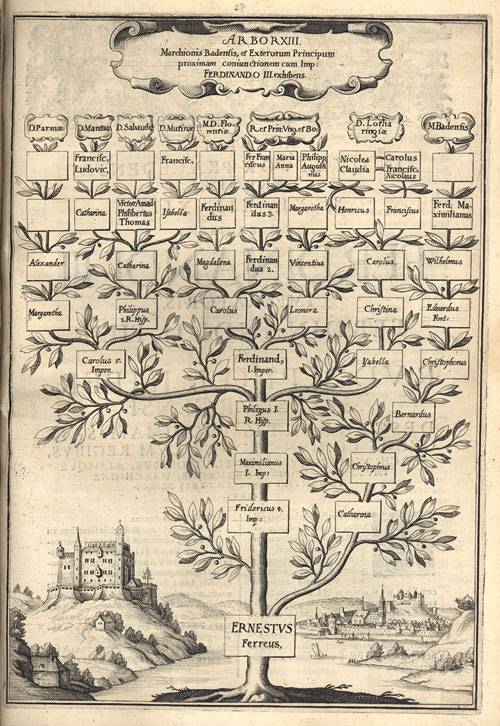 ARBOR XIII.
Marchionis Badensis, et Exterorum Principum
proximam coniunctionem cum Imp:
FERDINANDO III. exhibens.
D. Parmæ
D. Mantuæ
D. Sabaudiæ
D. Mutinæ
M.D. Flo-
rentiæ
R. et Prin: Vng. et Bo:
D. Lotha
ringiæ
M. Badensis
Francisc.
Ludovic.
Francisc.
Fer Fran
ciscus
Maria
Anna
Philipp
Augustin
nus
Nicolea
Claudia
Carolus
Francisc.
Nicolaus
Catharina
Victor Amad
Philibertus
Thomas
Isabella
Ferdinan
dus
Ferdinan
dus 3.
Margaretha
Henricus
Franciscus
Ferd: Ma-
ximilianus
Alexander
Catharina
Magdalena
Ferdinan
dus 2.
Vincentius
Carolus.
Wilhelmus
Margaretha
Philippus
2. R. Hisp.
Carolus
Leonora
Christina
Eduardus
Fort:
Carolus 5.
Imper.
Ferdinand,
I. Imper.
Isabella
Christophorus
Philippus I.
R. Hisp.
Bernardus
Maximilianus
I. Imp:
Christophorus
Fridericus 4.
Imp:
Catharina
ERNESTVS
Ferreus,